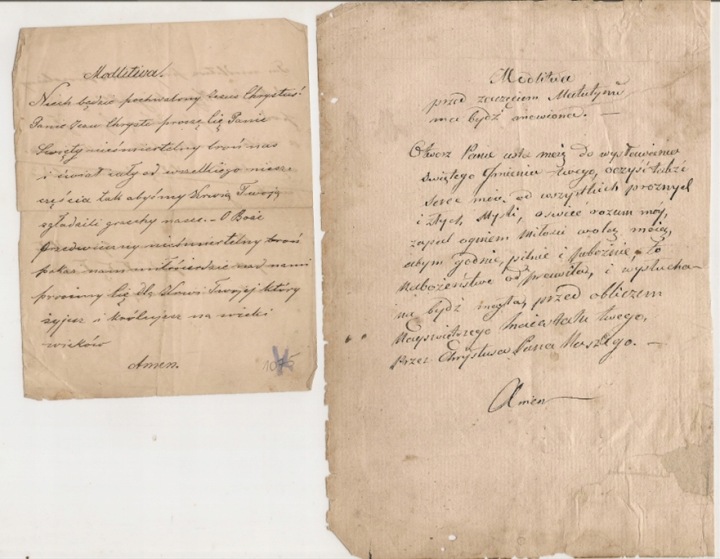 Modlitwa.
Niech będzie pochwalony Jezus Chrystus!
Panie Jezu Chryste proszę Cię Panie
Święty nieśmiertelny broń nas
i świat cały od wszelkiego niesz-
częścia tak abyśmy Krwią Twoją
zgładzili grzechy nasze. O Boże
przedwieczny nieśmiertelny broń
pokaż nam miłosierdzie nad nami
prosimy Cię dla Krwi Twojej który
żyjesz i królujesz na wieki
wieków
Amen.
Modlitwa
przed zaczęciem Matutynu
ma bydź mowiona. —
Otworz Panie usta moie do wysławienia
Swiętego Imienia twego, oczyść także
serce moie od wszystkich prożnych
i złych Myśli, oswieć rozum mój,
zapal ogniem Miłosci wolą moią,
abym godnie, pilnie i pobożnie, to
Nabożeństwo odprawiła, i wysłucha-
na bydź mogła, przed obliczem
Nayswiętszego twego,
przez Chrystusa Pana Naszego. —
Amen